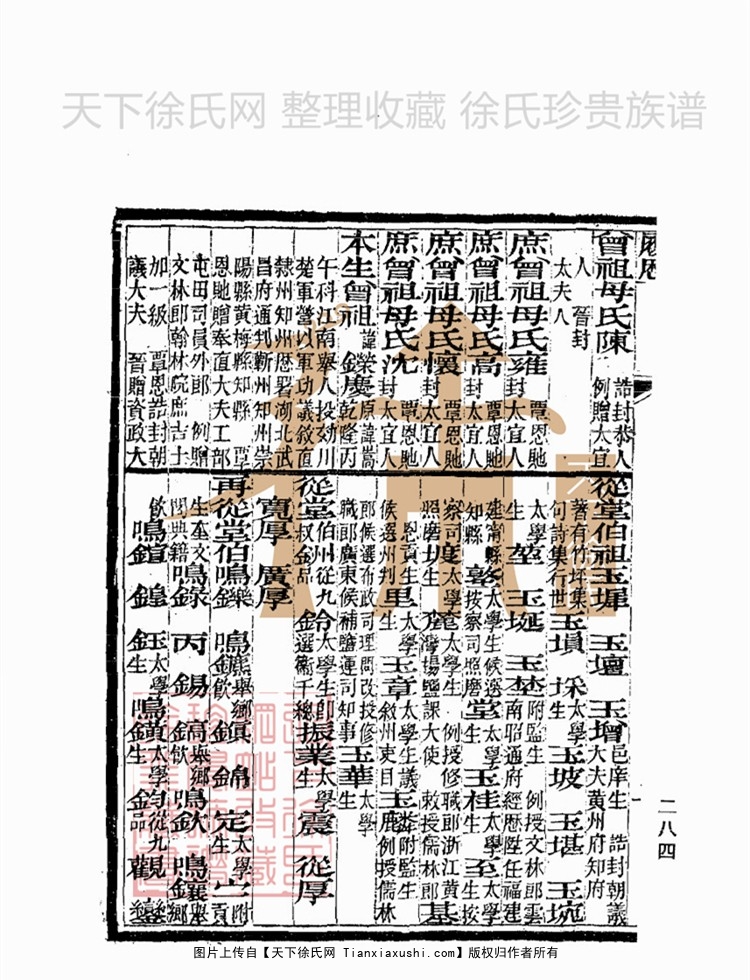 天下徐氏网 整理收藏 徐氏珍贵族谱
履歷
曾祖母氏陳 誥封恭人 例贈太宜
人 晉封
太夫人
庶曾祖母氏雍 覃恩貤封太宜人
庶曾祖母氏高 覃恩貤封太宜人
庶曾祖母氏懷 覃恩貤封太宜人
庶曾祖母氏沈 覃恩貤封太宜人
本生曾祖 諱鑅慶 原諱嵩 乾隆丙
午科江南舉人投効川
楚軍營以軍功議敘直
隸州知州歷署湖北武
昌府通判蘄州知州崇
陽縣黃梅縣知縣 覃
恩貤贈奉直大夫工部
屯田司員外郎 例贈
文林郎翰林院庶吉士
加一級 覃恩誥封朝
議大夫 晉贈資政大
從堂伯祖玉墀 玉壇 玉增 邑庠生 誥封朝議大夫黃州府知府
著有竹坪集句詩集行世 玉塤 埰 太學生 玉坡 玉堪 玉垸
太學生 堃 玉埏 玉埜 附監生 例授文林郎雲南昭通府經歷歷任福建
建甯縣知縣 太學生候選按察司照磨 堂 太學生 玉桂 太學生 至 太學生按
察司照磨 太學生 例授修職郎浙江黃灣場鹽課大使 敕授儒林郎 基
恩貢生候選州判 里 太學生 玉章 太學生議敘州吏目 玉麟 附監生例授儒林
郎候選布政司理問改授修職郎廣東候補鹽運司知事 玉華 太學生
從堂叔伯 太學生 即選衛千總 振業 太學生 震 從厚
寬厚 廣厚
再從堂伯鳴鑠 鳴鑣 鄉飲 鎮 錦 定 太學生 附貢
生 鳴錄 丙 錫 鎬 鄉飲 鳴欽 鳴鑲 鄉舉
飲 鳴鍹 鍠 鈺 太學生 鳴鐄 太學生 鈞 從九品 觀 鑾
二八四
图片上传自【天下徐氏网 Tianxiaxushi.com】版权归作者所有